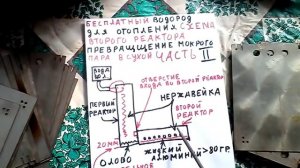 БЕСПЛАТНЫЙ ВОДОРОД
ДЛЯ ОТОПЛЕНИЯ СХЕМА
ВТОРОГО РЕАКТОРА
ПРЕВРАЩЩЕНИЕ МОКРОГО
ПАРА В СУХОЙ ЧАСТЬ II
ВОДА
ОТВЕРСТИЕ
ВХОДА ВО ВТОРОЙ РЕАКТОР
НЕРЖАВЕЙКА
ПЕРВЫЙ
РЕАКТОР
ВТОРОЙ
РЕАКТОР
20мм
ОЛОВО
ЖИДКИЙ
АЛЮМИНИЙ